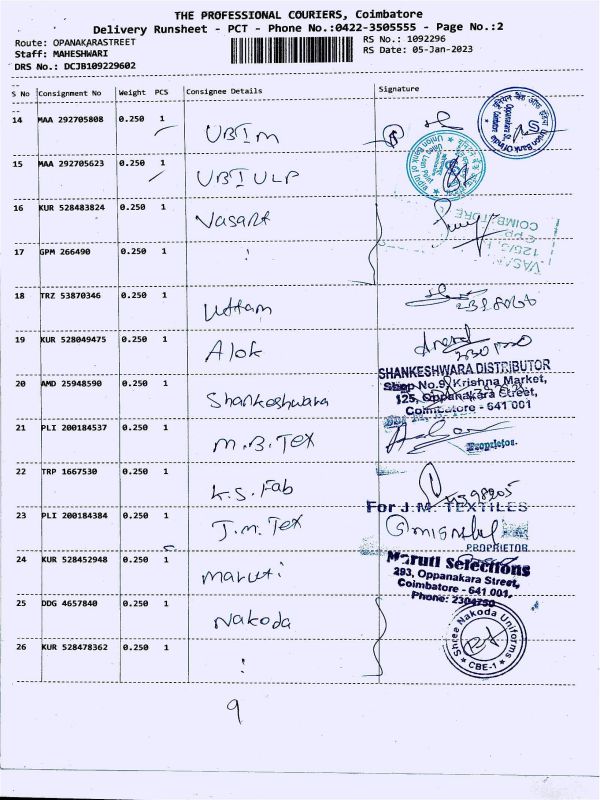 THE PROFESSIONAL COURIERS, Coimbatore
Delivery Runsheet - PCT - Phone No.:0422-3505555 - Page No.:2
Route: OPANAKARASTREET
RS No.: 1092296
Staff: MAHESHWARI
RS Date: 05-Jan-2023
DRS No.: DCJB109229602
S No Consignment No Weight PCS Consignee Details Signature
14 MAA 292705808 0.250 1 UBIM
Union Bank of India
15 MAA 292705623 0.250 1 UBIULP
16 KUR 528483824 0.250 1 Vasant
COIMBATORE
VASAN
17 GPM 266490 0.250 1 !
18 TRZ 53870346 0.250 1 Uttam
19 KUR 528049475 0.250 1 Alok
SHANKESHWARA DISTRIBUTOR
Shop No.9, Krishna Market,
125, Oppanakara Street,
Coimbatore - 641 001
20 AMD 25948590 0.250 1 Shankeshwara
21 PLI 200184537 0.250 1 M.B.Tex
Proprietor.
22 TRP 1667530 0.250 1 K.S. Fab
For J.M. TEXTILES
23 PLI 200184384 0.250 1 J.M. Tex
PROPRIETOR
24 KUR 528452948 0.250 1 Maruti
Maruti Selections
293, Oppanakara Street,
Coimbatore - 641 001.
Phone: 2304750
25 DDG 4657840 0.250 1 Nakoda
Shree Nakoda Uniforms
CBE-1
26 KUR 528478362 0.250 1 !
9